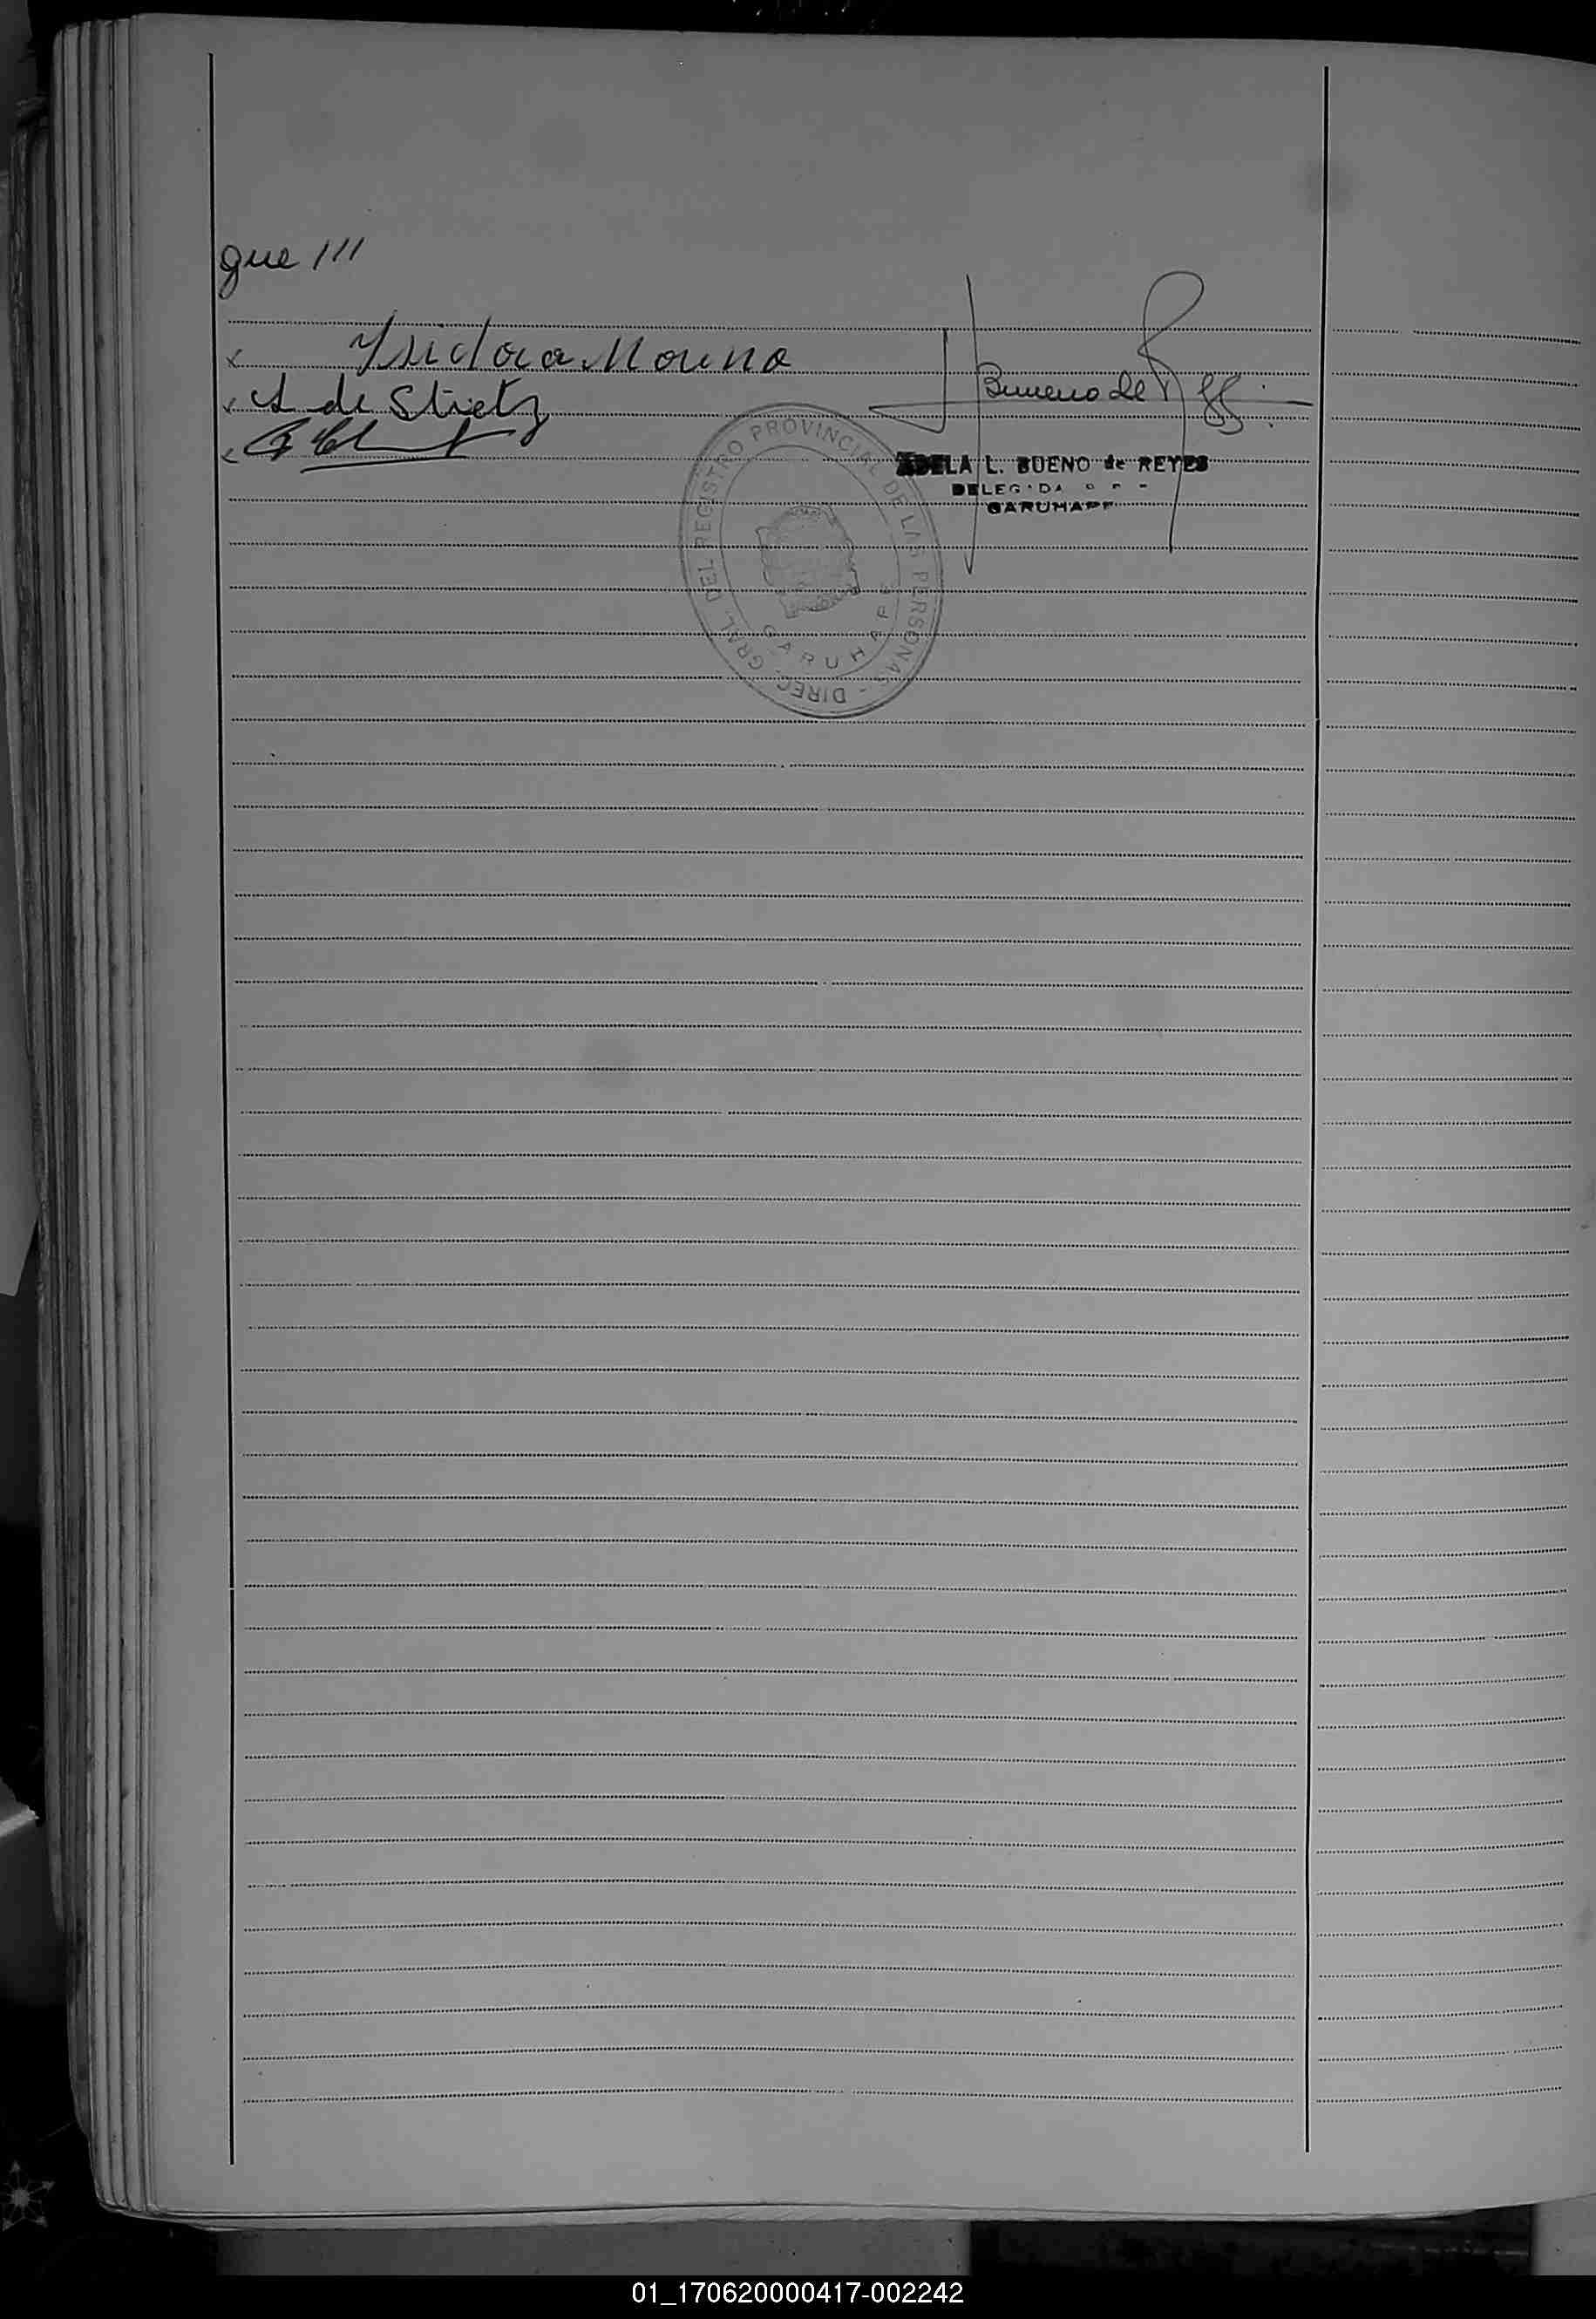 que ///
x Ysidora Moreno
x A de Strietz
x
Bueno de
ADELA L. BUENO de REYES
DELEGADA
GARUHAPE
DIREC. GRAL. DEL REGISTRO PROVINCIAL DE LAS PERSONAS -
GARUHAPE
01_170620000417-002242